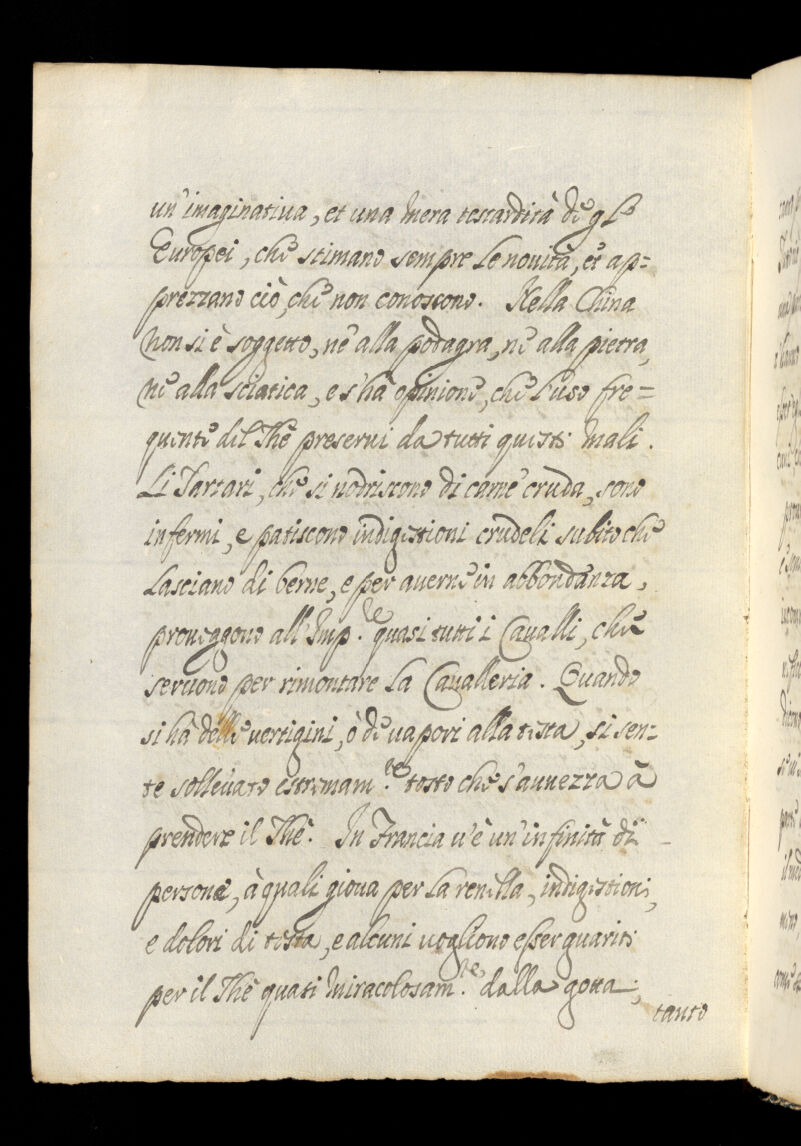 un'imaginatiua, et una mera testardità de gl'
Europei, che stimano sempre le novità, et ap=
prezzano ciò, che non conoscono. Nella China
non si è soggetto, nè alla podagra, nè alla pietra,
nè alla sciatica, e s'hà opinione, che l'uso fre=
quente del Thè preserui da tutti questi mali.
Li Tartari, che si nodriscono di carne cruda, sono
infermi, e patiscono indigestioni crudeli subito che
lasciano di berne, e per auerne in abbondanza,
proueggono all'Imp.re quasi tutti i Caualli, che
seruono per rimontare la Caualleria. Quando
si hà delle uertigini, ò de uapori alla testa, si sen=
te solleuato estremam.te tosto che s'auuezza à
prendere il Thè. In Francia u'è un'infinità di
persone, à quali gioua per la renella, indigestioni,
e dolori di testa, e alcuni uogliono esser guariti
per il Thè quasi miracolosam.te dalla gotta;
tanto